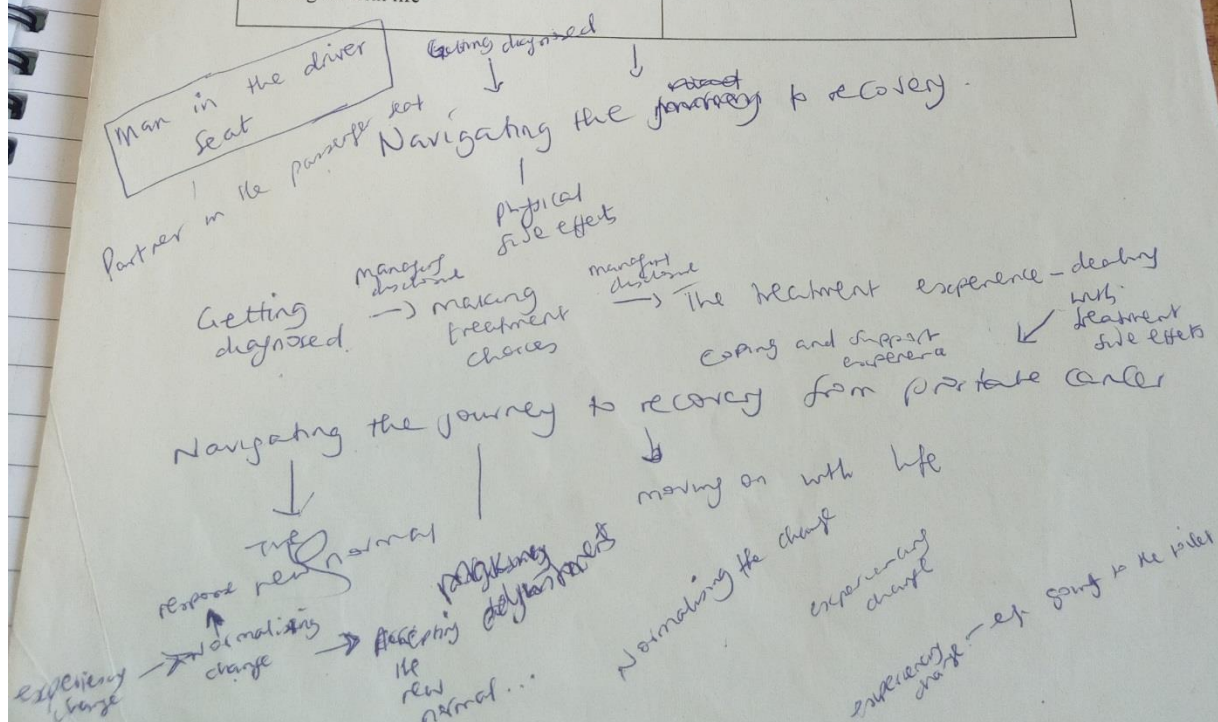 Getting diagnosed
Man in the driver
Seat
Partner in the passenger seat
Navigating the journey to recovery.
physical
side effects
Getting
diagnosed.
managing
disclosure
making
treatment
choices
managing
disclosure
The treatment experience - dealing
with
treatment
side effects
coping and support
experience
Navigating the journey to recovery from prostate cancer
The
new normal
response
making
adjustment
moving on with life
experiency
change
Normalising
change
Accepting
the
new
normal...
Normalising the change
experiencing
change
experiencing
change - eg. going to the toilet